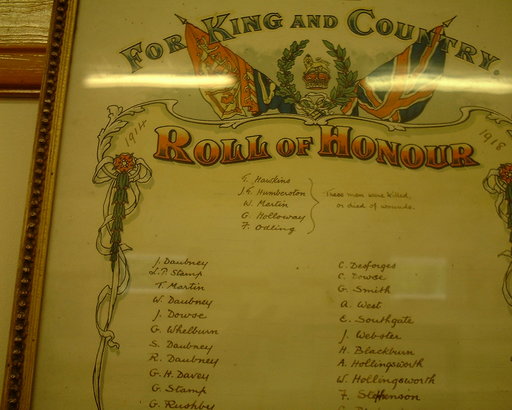 FOR KING AND COUNTRY.
1914
1918
ROLL OF HONOUR
T. Hawkins
J.G. Humberston
W. Martin
G. Holloway
F. Odling
These men were killed,
or died of wounds.
J. Daubney
L.P. Stamp
T. Martin
W. Daubney
J. Dowse
G. Whelburn
S. Daubney
R. Daubney
G.H. Davey
G. Stamp
G. Rushby
C. Desforges
C. Dowse
G. Smith
A. West
E. Southgate
J. Webster
H. Blackburn
A. Hollingsworth
W. Hollingsworth
F. Stephenson